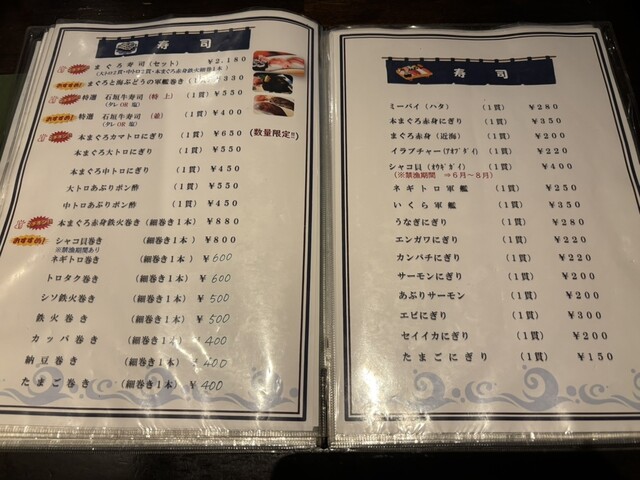 寿司
まぐろ寿司(セット) ¥2,180
(大トロ2貫・中トロ2貫・本まぐろ赤身鉄火細巻き1本)
おすすめ! まぐろと海ぶどうの軍艦巻き(1貫)¥330
特選 石垣牛寿司(特上) (1貫)¥550
(タレ OR 塩)
おすすめ! 特選 石垣牛寿司(並) (1貫)¥400
(タレ OR 塩)
本まぐろカマトロにぎり (1貫) ¥650 (数量限定!!)
本まぐろ大トロにぎり (1貫) ¥550
本まぐろ中トロにぎり (1貫) ¥450
大トロあぶりポン酢 (1貫) ¥550
中トロあぶりポン酢 (1貫) ¥450
本まぐろ赤身鉄火巻き(細巻き1本)¥880
おすすめ! シャコ貝巻き (細巻き1本)¥800
※禁漁期間あり
ネギトロ巻き (細巻き1本)¥600
トロタク巻き (細巻き1本)¥600
シソ鉄火巻き (細巻き1本)¥500
鉄火巻き (細巻き1本)¥500
カッパ巻き (細巻き1本)¥400
納豆巻き (細巻き1本)¥400
たまご巻き (細巻き1本)¥400
寿司
ミーバイ(ハタ) (1貫) ¥280
本まぐろ赤身にぎり (1貫) ¥350
まぐろ赤身(近海) (1貫) ¥200
イラブチャー(アオブダイ) (1貫) ¥220
シャコ貝(オウギガイ) (1貫) ¥400
(※禁漁期間 ⇒6月~8月)
ネギトロ軍艦 (1貫) ¥250
いくら軍艦 (1貫) ¥350
うなぎにぎり (1貫) ¥280
エンガワにぎり (1貫) ¥220
カンパチにぎり (1貫) ¥220
サーモンにぎり (1貫) ¥200
あぶりサーモン (1貫) ¥200
エビにぎり (1貫) ¥300
セイイカにぎり (1貫) ¥200
たまごにぎり (1貫) ¥150